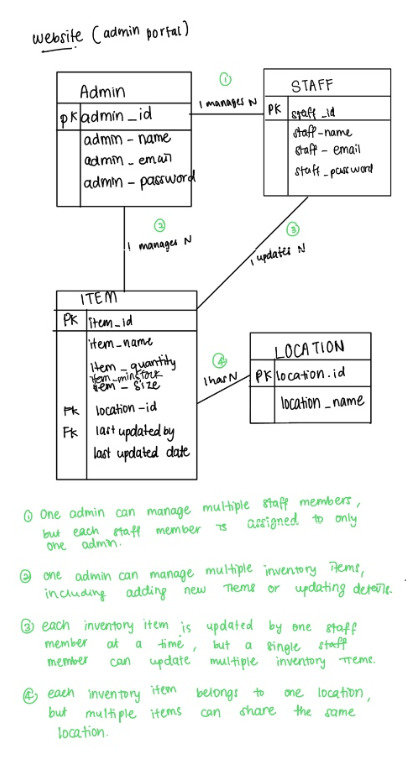 website (admin portal)
Admin
pk admin_id
admin - name
admin - email
admin - password
①
1 manages N
STAFF
PK staff_id
staff-name
staff - email
staff - password
②
1 manages N
③
1 updates N
ITEM
PK item_id
item_name
item _ quantity
item_minstock
item - size
FK location-id
FK last updated by
last updated date
④
1 has N
LOCATION
PK location.id
location _name
① One admin can manage multiple staff members,
but each staff member is assigned to only
one admin.
② one admin can manage multiple inventory items,
including adding new items or updating details.
③ each inventory item is updated by one staff
member at a time, but a single staff
member can update multiple inventory items.
④ each inventory item belongs to one location,
but multiple items can share the same
location.